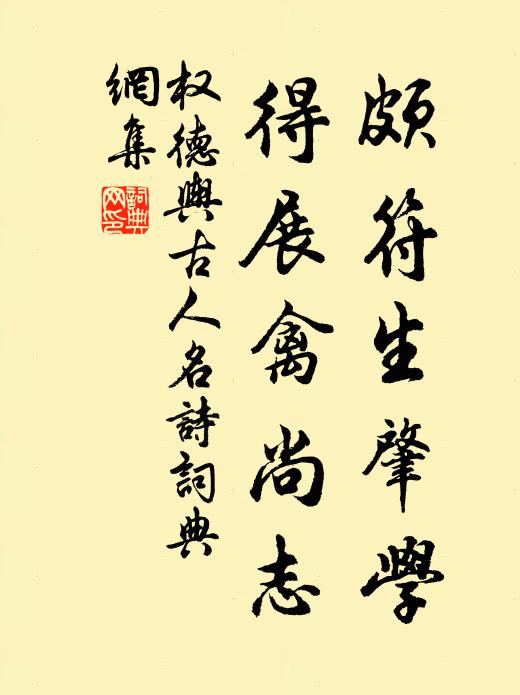 頗符生肇學
得展禽尚志
权德輿古人名詩詞典
網集
詞典網印